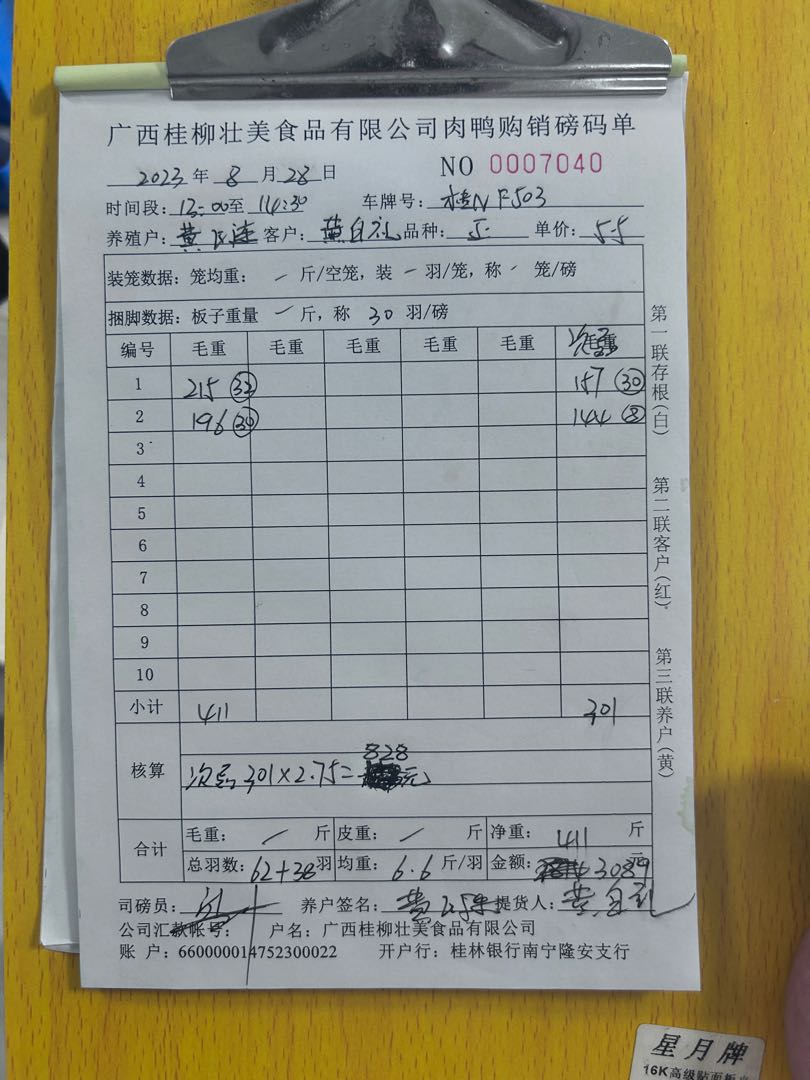 广西桂柳壮美食品有限公司肉鸭购销磅码单
2023年 8 月 28 日 NO 0007040
时间段: 13:00至 14:30 车牌号: 桂N F503
养殖户: 黄 客户: 黄自礼 品种: 单价: 5.5
装笼数据: 笼均重: 一 斤/空笼, 装 一 羽/笼, 称 笼/磅
捆脚数据: 板子重量 一 斤, 称 30 羽/磅
编号 毛重 毛重 毛重 毛重 毛重
1 215 (32) 157 (30)
2 196 (30) 144 (8)
3
4
5
6
7
8
9
10
小计 411 301
828
核算 次品 301×2.75= 元
合计 毛重: / 斤 皮重: / 斤 净重: 411 斤
总羽数: 62+38羽 均重: 6.6 斤/羽 金额: 3089 元
司磅员: 养户签名: 黄 提货人: 黄自礼
公司汇款帐号: 户名: 广西桂柳壮美食品有限公司
账 户: 660000014752300022 开户行: 桂林银行南宁隆安支行
第一联存根(白)
第二联客户(红)
第三联养户(黄)
星月牌
16K高级贴面板